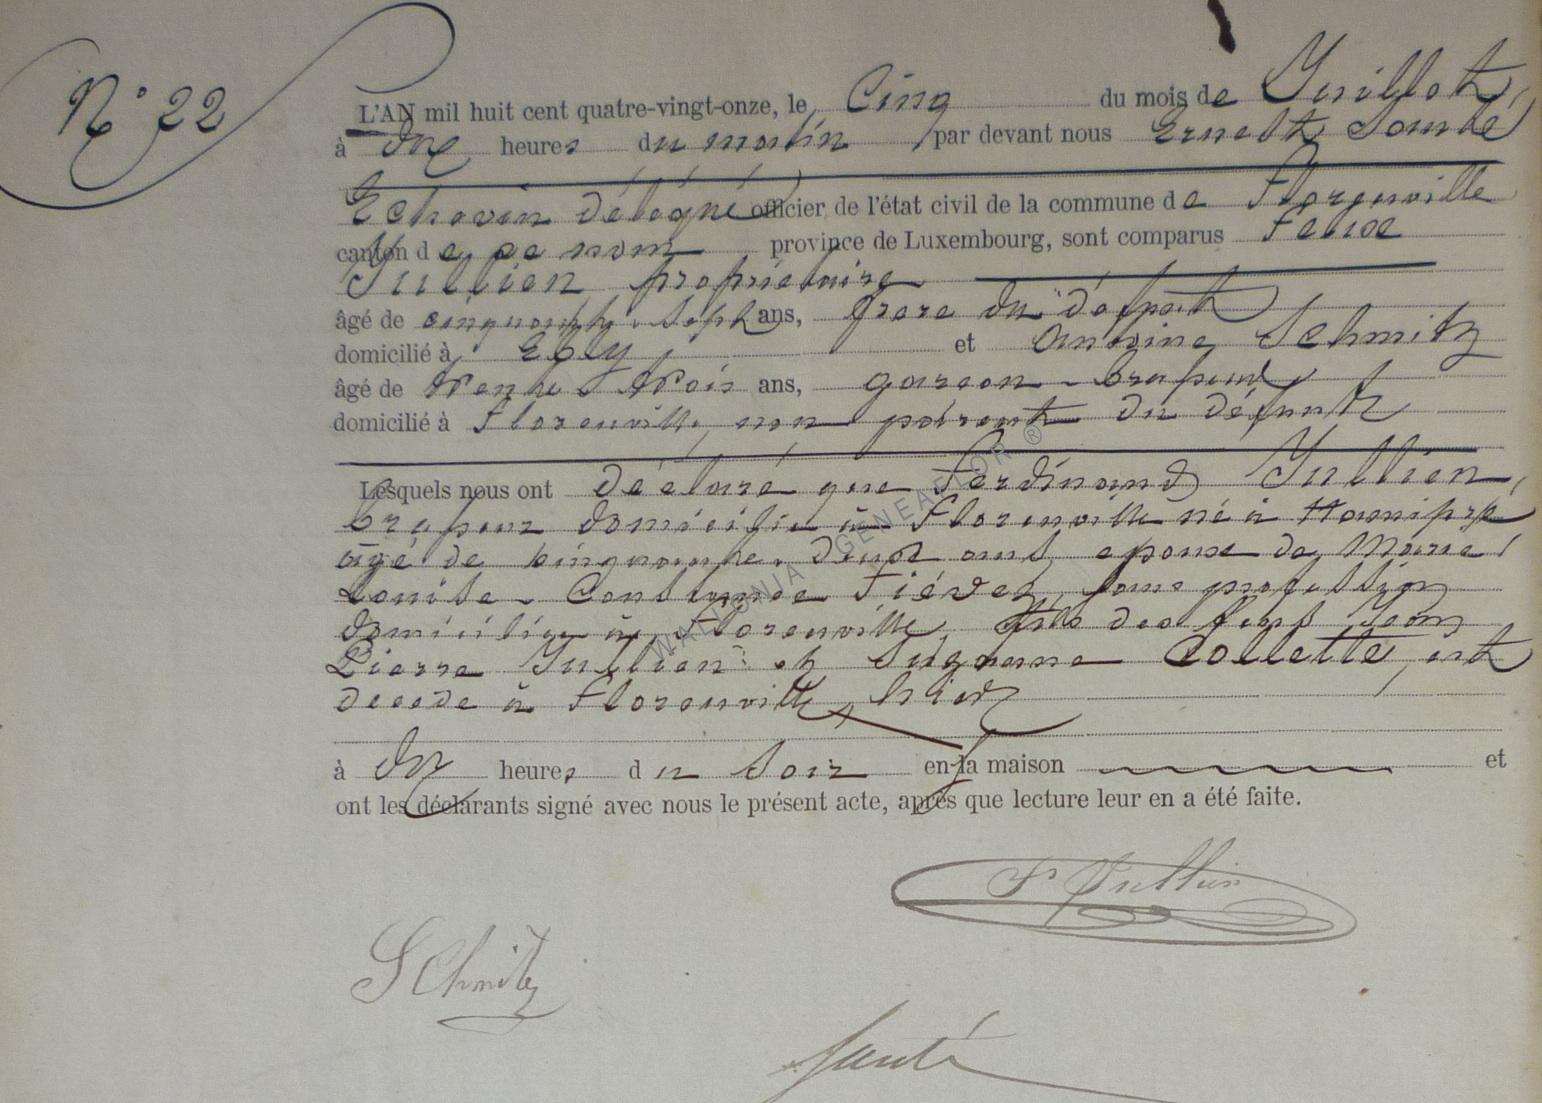 N° 22
L'AN mil huit cent quatre-vingt-onze, le Cinq du mois de Juillet,
à dix heures du matin par devant nous Ernest Santé,
Echevin délégué officier de l'état civil de la commune de Florenville
canton de ce nom province de Luxembourg, sont comparus Felix
Jullien propriétaire
âgé de cinquante-sept ans, frere du défunt
domicilié à Ebly, et Antoine Schmitz
âgé de trente trois ans, garçon-brasseur,
domicilié à Florenville, non parent du défunt
Lesquels nous ont déclaré que Ferdinand Jullien,
brasseur domicilié à Florenville né à Hamipré
agé de cinquante-deux ans, epoux de Marie
Louise-Constance Fiévez, sans profession
domiciliée à Florenville, fils des feus Jean
Pierre Jullien et Suzanne Collette, est
decedé à Florenville, hier
à dix heures du soir en la maison et
ont les déclarants signé avec nous le présent acte, après que lecture leur en a été faite.
F Jullien
Schmitz
Santé
WALLONIA GENEAFLOR ®